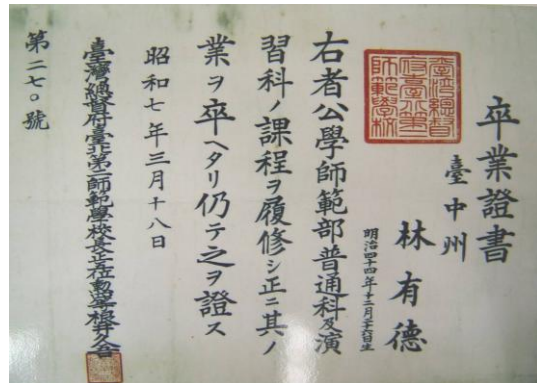 卒業證書
臺中州
林有德
明治四十四年十二月廿六日生
右者公學師範部普通科及演
習科ノ課程ヲ履修シ正ニ其ノ
業ヲ卒ヘタリ仍テ之ヲ證ス
昭和七年三月十八日
臺灣總督府臺北第二師範學校長正五位勳四等
第二七〇號